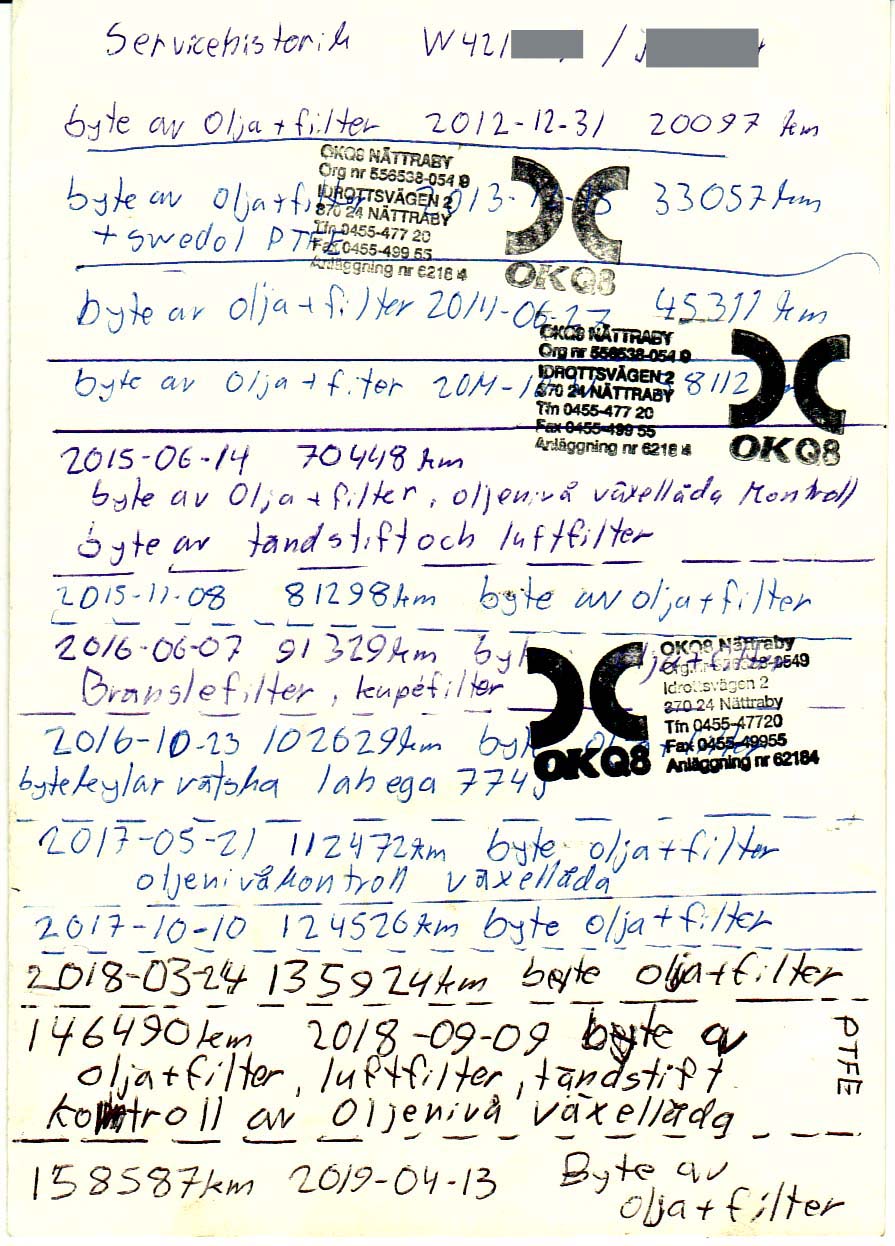 Servicehistorik W421 /
byte av olja + filter 2012-12-31 20097 km
OKQ8 NÄTTRABY
Org nr 556538-054 9
IDROTTSVÄGEN 2
370 24 NÄTTRABY
Tfn 0455-477 20
Fax 0455-499 55
Anläggning nr 6218 4
OKQ8
byte av olja + filter 2013-12-15 33057 km
+ swedol PTFE
byte av olja + filter 2014-06-27 45311 km
OKQ8 NÄTTRABY
Org nr 556538-054 9
IDROTTSVÄGEN 2
370 24 NÄTTRABY
Tfn 0455-477 20
Fax 0455-499 55
Anläggning nr 6218 4
OKQ8
byte av olja + filter 2014-1 8112
2015-06-14 70448 km
byte av olja + filter, oljenivå växellåda kontroll
byte av tändstift och luftfilter
2015-11-08 81298 km byte av olja + filter
2016-06-07 91329 km byte olja + filter
Bränslefilter, kupéfilter
OKQ8
OKQ8 Nättraby
Org.nr 556538-0549
Idrottsvägen 2
370 24 Nättraby
Tfn 0455-47720
Fax 0455-49955
Anläggning nr 62184
2016-10-23 102629 km byte olja + filter
byte kylar vätska lahega 774
2017-05-21 112472 km byte olja + filter
oljenivåkontroll växellåda
2017-10-10 124526 km byte olja + filter
2018-03-24 135924 km byte olja + filter
146490 km 2018-09-09 byte av
olja + filter, luftfilter, tändstift
kontroll av oljenivå växellåda
PTFE
158587 km 2019-04-13 Byte av
olja + filter